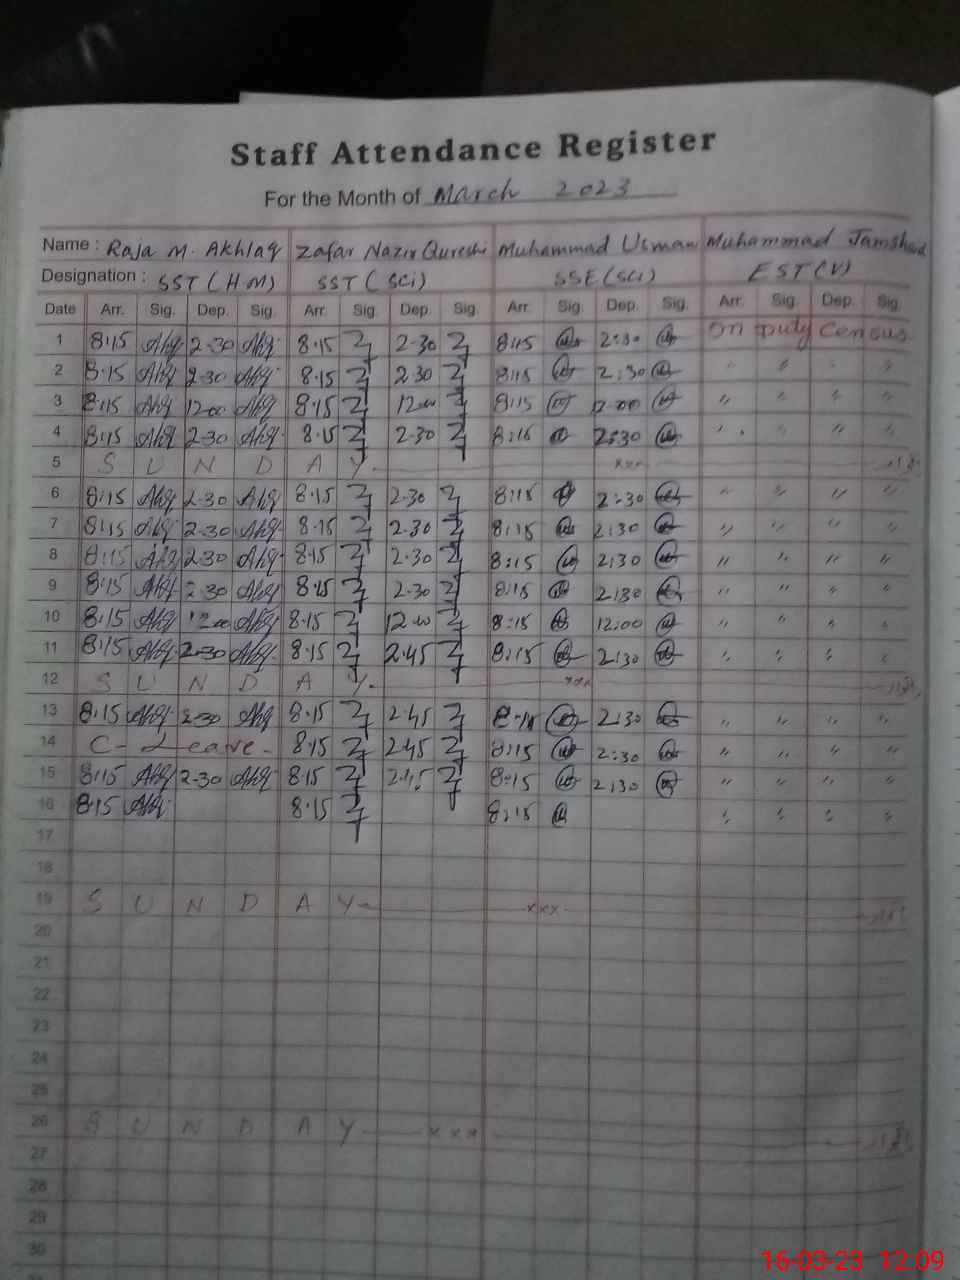 Staff Attendance Register
For the Month of March 2023
Name : Raja M. Akhlaq Zafar Nazir Qureshi Muhammad Usman Muhammad Jamshaid
Designation : SST (H.M) SST (Sci) SSE (Sci) EST (V)
Date Arr. Sig. Dep. Sig. Arr. Sig. Dep. Sig. Arr. Sig. Dep. Sig. Arr. Sig. Dep. Sig.
1 8:15 2-30 8·15 2-30 8:15 2:30 On Duty Census
2 8·15 2-30 8·15 2·30 8:15 2:30 " " " "
3 8:15 12-00 8·15 12-00 8:15 12-00 " " " "
4 8:15 2-30 8·15 2·30 8:15 2:30 " " " "
5 S U N D A Y xxx
6 8:15 2-30 8·15 2·30 8:15 2:30 " " " "
7 8:15 2-30 8·15 2·30 8:15 2:30 " " " "
8 8:15 2-30 8·15 2·30 8:15 2:30 " " " "
9 8:15 2-30 8·15 2·30 8:15 2:30 " " " "
10 8:15 12-00 8·15 12-00 8:15 12:00 " " " "
11 8:15 2-30 8·15 2·45 8:15 2:30 " " " "
12 S U N D A Y. xxx
13 8:15 2-30 8·15 2·45 8-15 2:30 " " " "
14 C- Leave - 8·15 2·45 8:15 2:30 " " " "
15 8:15 2-30 8·15 2·45 8:15 2:30 " " " "
16 8:15 8·15 8:15 " " " "
17
18
19 S U N D A Y- xxx
20
21
22
23
24
25
26 S U N D A Y xxx
27
28
29
30
16-03-23 12:09